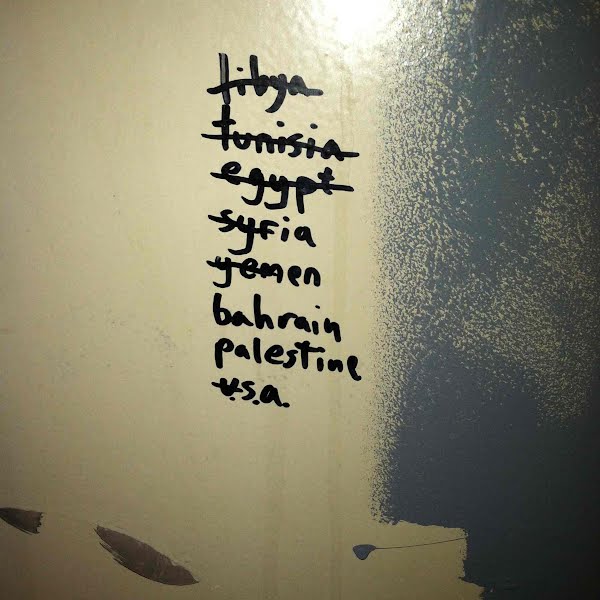 libya
tunisia
egypt
syria
yemen
bahrain
palestine
u.s.a.